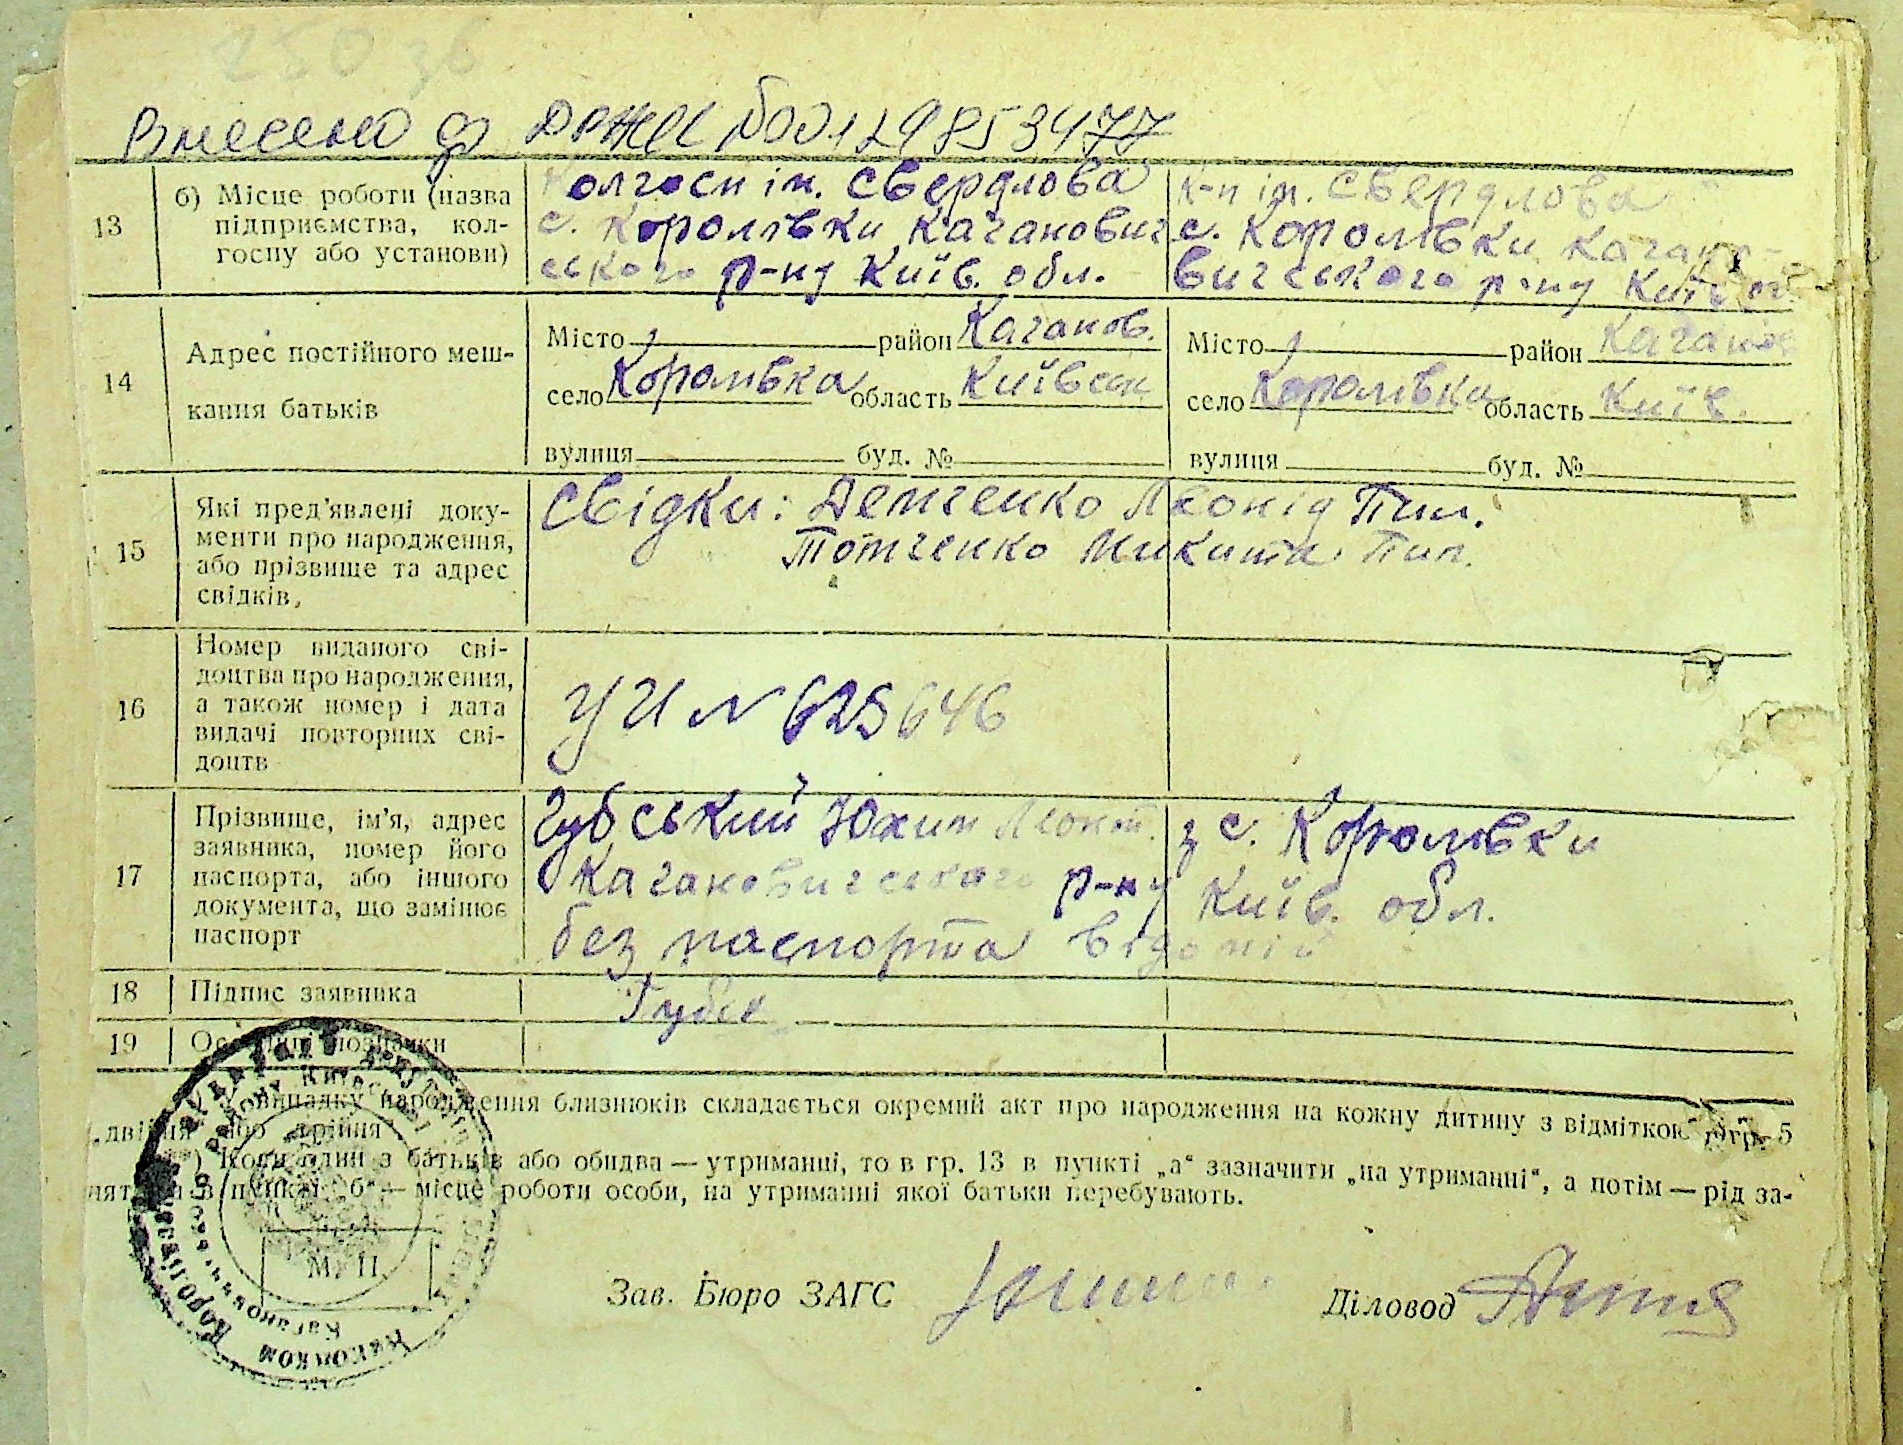 Внесено до ДРАЦС №00129853477
13
б) Місце роботи (назва
підприємства, кол-
госпу або установи)
Колгосп ім. Свердлова
с. Королівки Каганович
ського р-ну Київ. обл.
к-п ім. Свердлова
с. Королівки Кагано-
вичського р-ну Київ об
14
Адрес постійного меш-
кання батьків
Місто район Каганов.
село Королівка область Київськ
вулиця буд. №
Місто район Каганов
село Королівка область Київ.
вулиця буд. №
15
Які пред'явлені доку-
менти про народження,
або прізвище та адрес
свідків,
Свідки: Демченко Леонід Пил.
Тотченко Микита Пил.
16
Номер виданого сві-
доцтва про народження,
а також номер і дата
видачі повторних сві-
доцтв
УИ № 625646
17
Прізвище, ім'я, адрес
заявника, номер його
паспорта, або іншого
документа, що замінює
паспорт
Губський Юхим Леонт. з с. Королівки
Кагановичського р-ну Київ. обл.
без паспорта відомий
18 Підпис заявника
Губс
19 Особливі позначки
) У випадку народження близнюків складається окремий акт про народження на кожну дитину з відміткою в гр. 5
„двійня або трійня"
) Коли один з батьків або обидва — утриманні, то в гр. 13 в пункті „а" зазначити „на утриманні", а потім — рід за-
няття в пункті „б" — місце роботи особи, на утриманні якої батьки перебувають.
М. П.
Зав. Бюро ЗАГС
Діловод